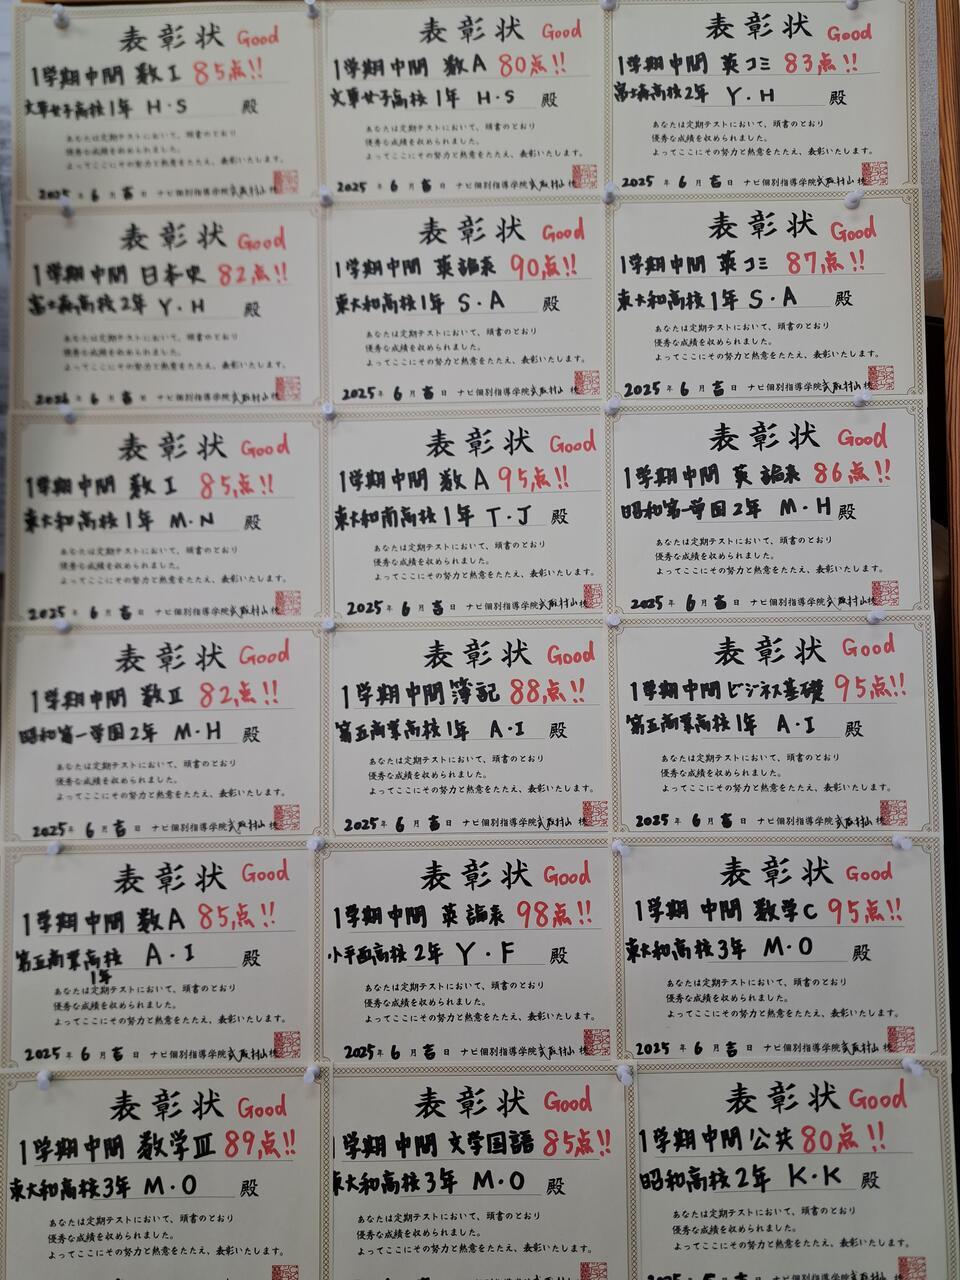 表彰状 Good
1学期中間 数I 85点!!
文華女子高校1年 H・S 殿
あなたは定期テストにおいて、頭書のとおり
優秀な成績を収められました。
よってここにその努力と熱意をたたえ、表彰いたします。
2025年6月吉日 ナビ個別指導学院武蔵村山校
表彰状 Good
1学期中間 数A 80点!!
文華女子高校1年 H・S 殿
あなたは定期テストにおいて、頭書のとおり
優秀な成績を収められました。
よってここにその努力と熱意をたたえ、表彰いたします。
2025年6月吉日 ナビ個別指導学院武蔵村山校
表彰状 Good
1学期中間 英コミ 83点!!
富士森高校2年 Y・H 殿
あなたは定期テストにおいて、頭書のとおり
優秀な成績を収められました。
よってここにその努力と熱意をたたえ、表彰いたします。
2025年6月吉日 ナビ個別指導学院武蔵村山校
表彰状 Good
1学期中間 日本史 82点!!
富士森高校2年 Y・H 殿
あなたは定期テストにおいて、頭書のとおり
優秀な成績を収められました。
よってここにその努力と熱意をたたえ、表彰いたします。
2025年6月吉日 ナビ個別指導学院武蔵村山校
表彰状 Good
1学期中間 英論表 90点!!
東大和高校1年 S・A 殿
あなたは定期テストにおいて、頭書のとおり
優秀な成績を収められました。
よってここにその努力と熱意をたたえ、表彰いたします。
2025年6月吉日 ナビ個別指導学院武蔵村山校
表彰状 Good
1学期中間 英コミ 87点!!
東大和高校1年 S・A 殿
あなたは定期テストにおいて、頭書のとおり
優秀な成績を収められました。
よってここにその努力と熱意をたたえ、表彰いたします。
2025年6月吉日 ナビ個別指導学院武蔵村山校
表彰状 Good
1学期中間 数I 85点!!
東大和高校1年 M・N 殿
あなたは定期テストにおいて、頭書のとおり
優秀な成績を収められました。
よってここにその努力と熱意をたたえ、表彰いたします。
2025年6月吉日 ナビ個別指導学院武蔵村山校
表彰状 Good
1学期中間 数A 95点!!
東大和南高校1年 T・J 殿
あなたは定期テストにおいて、頭書のとおり
優秀な成績を収められました。
よってここにその努力と熱意をたたえ、表彰いたします。
2025年6月吉日 ナビ個別指導学院武蔵村山校
表彰状 Good
1学期中間 英論表 86点!!
昭和第一学園2年 M・H 殿
あなたは定期テストにおいて、頭書のとおり
優秀な成績を収められました。
よってここにその努力と熱意をたたえ、表彰いたします。
2025年6月吉日 ナビ個別指導学院武蔵村山校
表彰状 Good
1学期中間 数II 82点!!
昭和第一学園2年 M・H 殿
あなたは定期テストにおいて、頭書のとおり
優秀な成績を収められました。
よってここにその努力と熱意をたたえ、表彰いたします。
2025年6月吉日 ナビ個別指導学院武蔵村山校
表彰状 Good
1学期中間 簿記 88点!!
第五商業高校1年 A・I 殿
あなたは定期テストにおいて、頭書のとおり
優秀な成績を収められました。
よってここにその努力と熱意をたたえ、表彰いたします。
2025年6月吉日 ナビ個別指導学院武蔵村山校
表彰状 Good
1学期中間 ビジネス基礎 95点!!
第五商業高校1年 A・I 殿
あなたは定期テストにおいて、頭書のとおり
優秀な成績を収められました。
よってここにその努力と熱意をたたえ、表彰いたします。
2025年6月吉日 ナビ個別指導学院武蔵村山校
表彰状 Good
1学期中間 数A 85点!!
第五商業高校 A・I 殿
1年
あなたは定期テストにおいて、頭書のとおり
優秀な成績を収められました。
よってここにその努力と熱意をたたえ、表彰いたします。
2025年6月吉日 ナビ個別指導学院武蔵村山校
表彰状 Good
1学期中間 英論表 98点!!
小平西高校2年 Y・F 殿
あなたは定期テストにおいて、頭書のとおり
優秀な成績を収められました。
よってここにその努力と熱意をたたえ、表彰いたします。
2025年6月吉日 ナビ個別指導学院武蔵村山校
表彰状 Good
1学期中間 数学C 95点!!
東大和高校3年 M・O 殿
あなたは定期テストにおいて、頭書のとおり
優秀な成績を収められました。
よってここにその努力と熱意をたたえ、表彰いたします。
2025年6月吉日 ナビ個別指導学院武蔵村山校
表彰状 Good
1学期中間 数学III 89点!!
東大和高校3年 M・O 殿
あなたは定期テストにおいて、頭書のとおり
優秀な成績を収められました。
よってここにその努力と熱意をたたえ、表彰いたします。
表彰状 Good
1学期中間 文学国語 85点!!
東大和高校3年 M・O 殿
あなたは定期テストにおいて、頭書のとおり
優秀な成績を収められました。
よってここにその努力と熱意をたたえ、表彰いたします。
表彰状 Good
1学期中間 公共 80点!!
昭和高校2年 K・K 殿
あなたは定期テストにおいて、頭書のとおり
優秀な成績を収められました。
よってここにその努力と熱意をたたえ、表彰いたします。